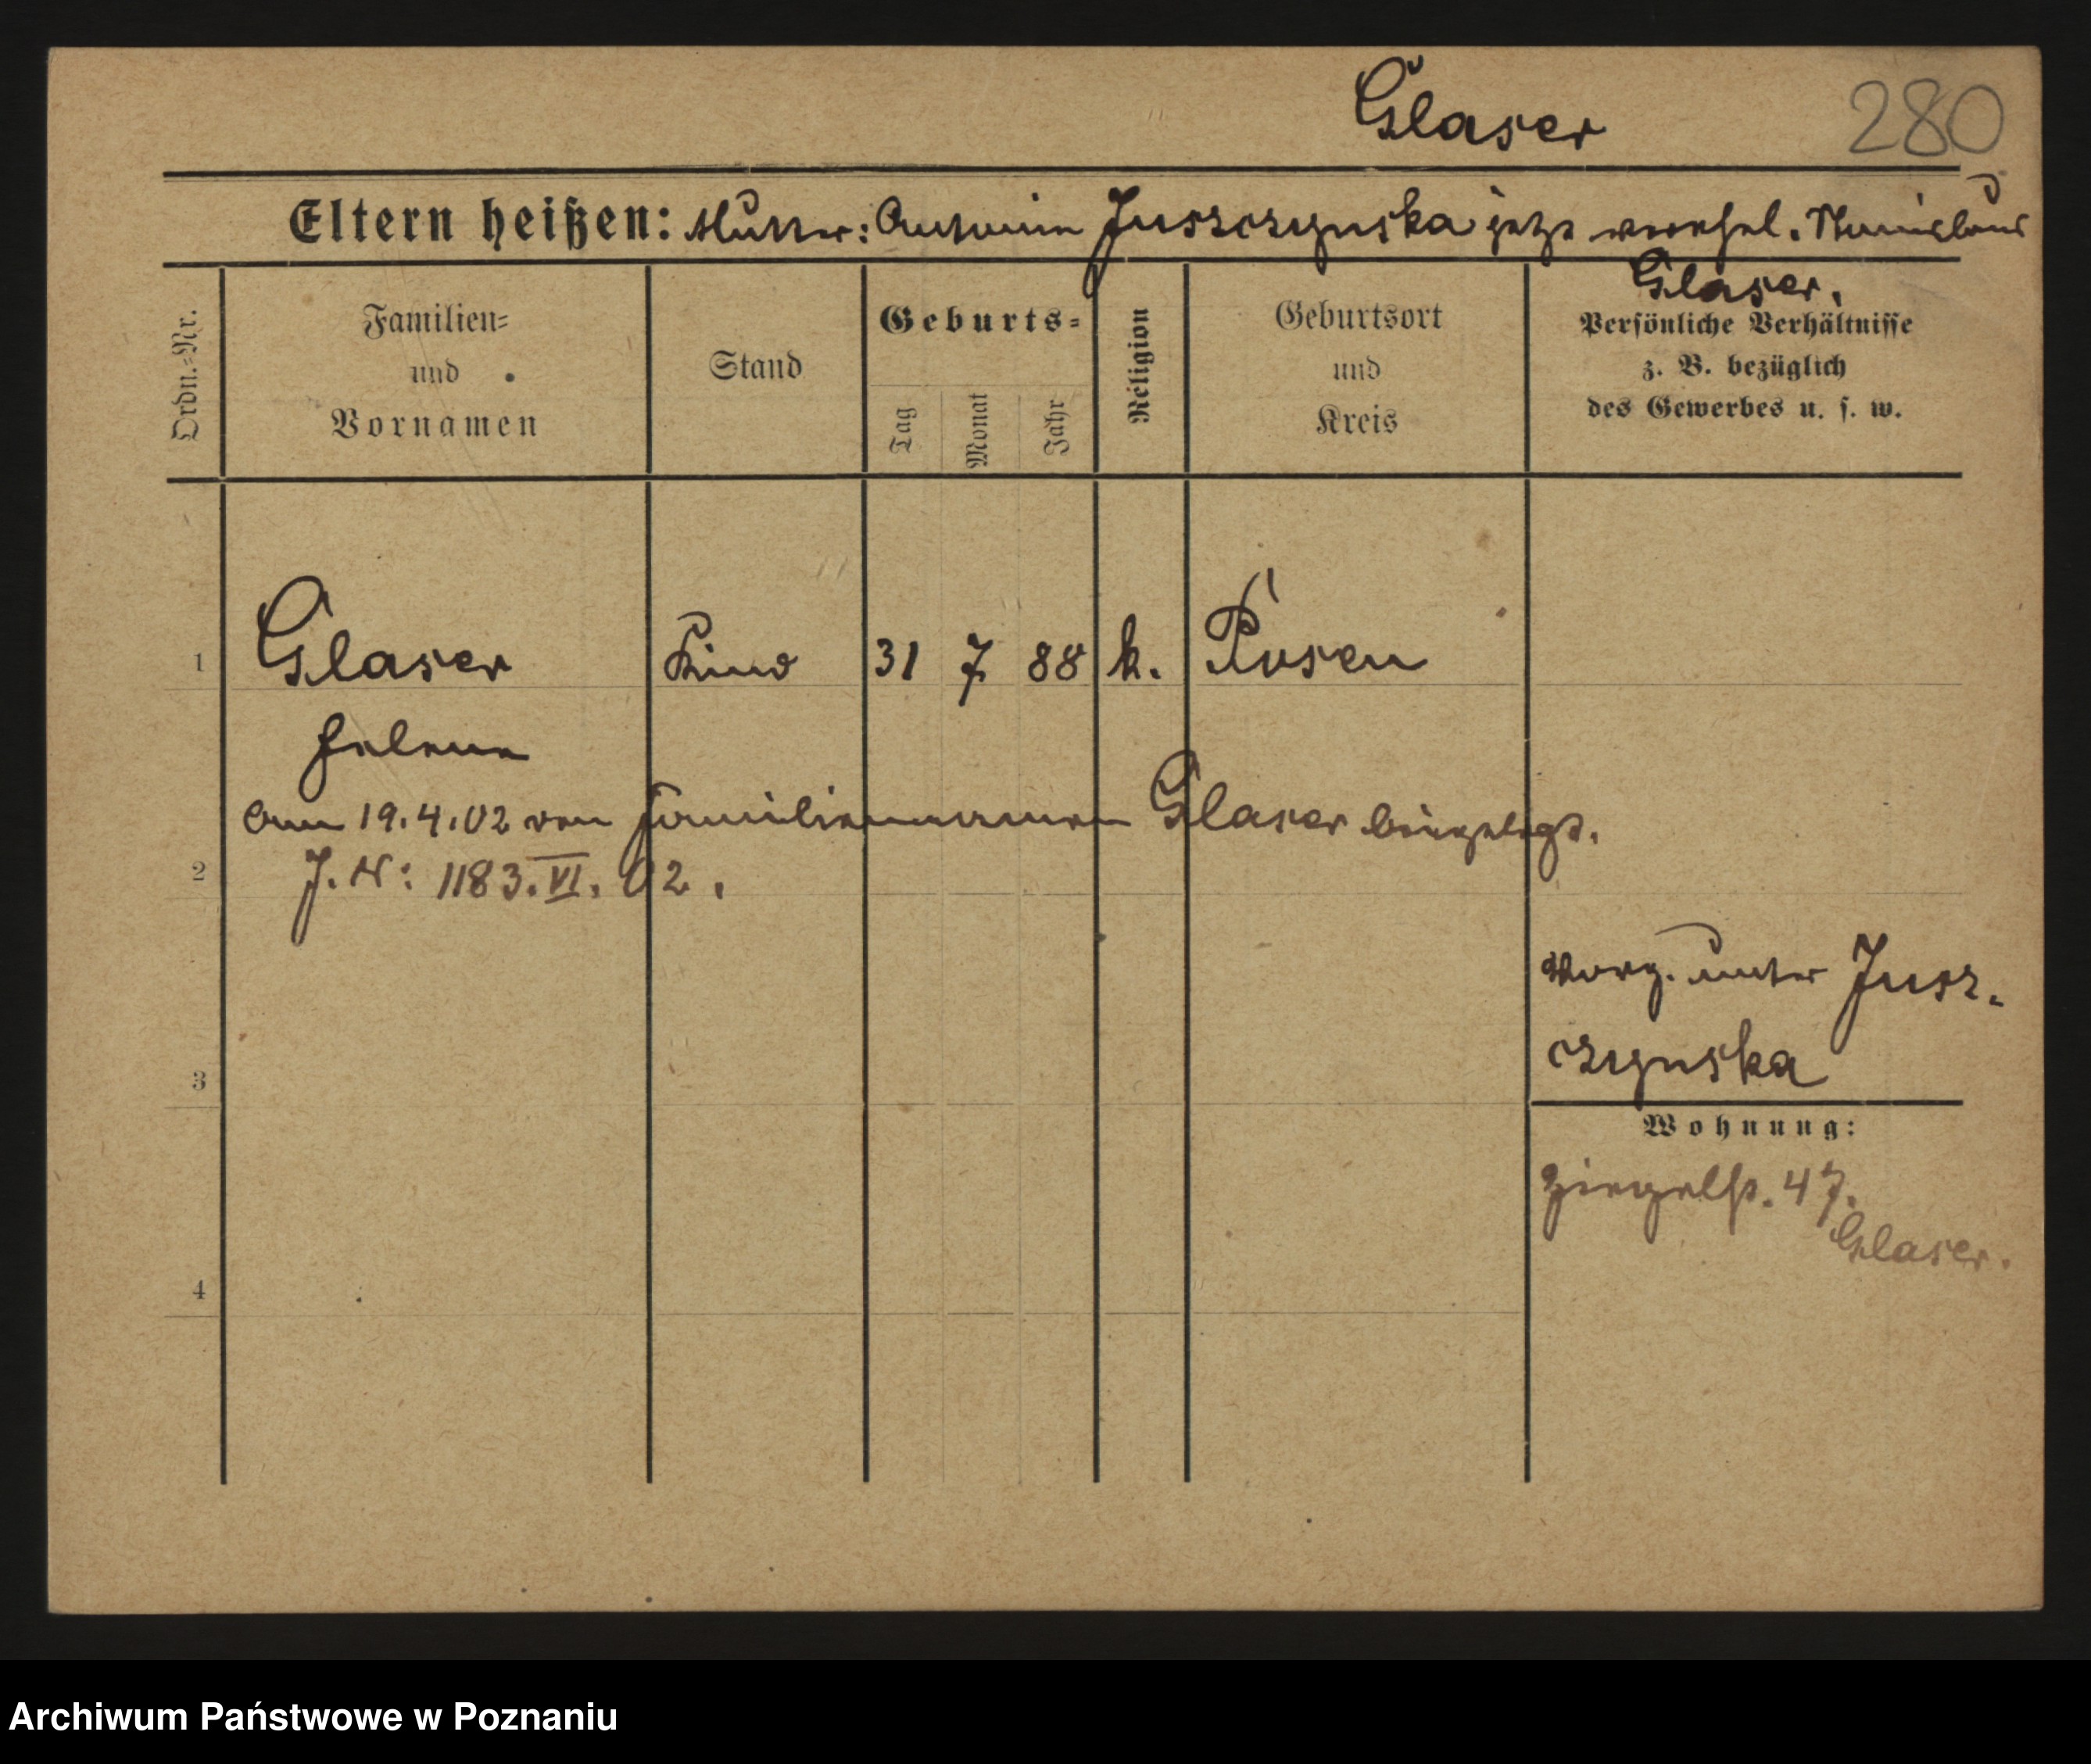 Glaser 280
Eltern heißen: Mutter: Antonie Juszczynska jetzt verehel. Stanislaus
Glaser.
Ordn.-Nr.
Familien-
und
Vornamen
Stand
Geburts-
Tag
Monat
Jahr
Religion
Geburtsort
und
Kreis
Persönliche Verhältnisse
z. B. bezüglich
des Gewerbes u. s. w.
1 Glaser Kind 31 7 88 k. Posen
Helene
Am 19.4.02 den Familiennamen Glaser beigelegt.
2 J. N: 1183.VI.02.
Vorg. unter Jusz-
3 czynska
Wohnung:
Ziegelstr. 47.
Glaser.
4
Archiwum Państwowe w Poznaniu